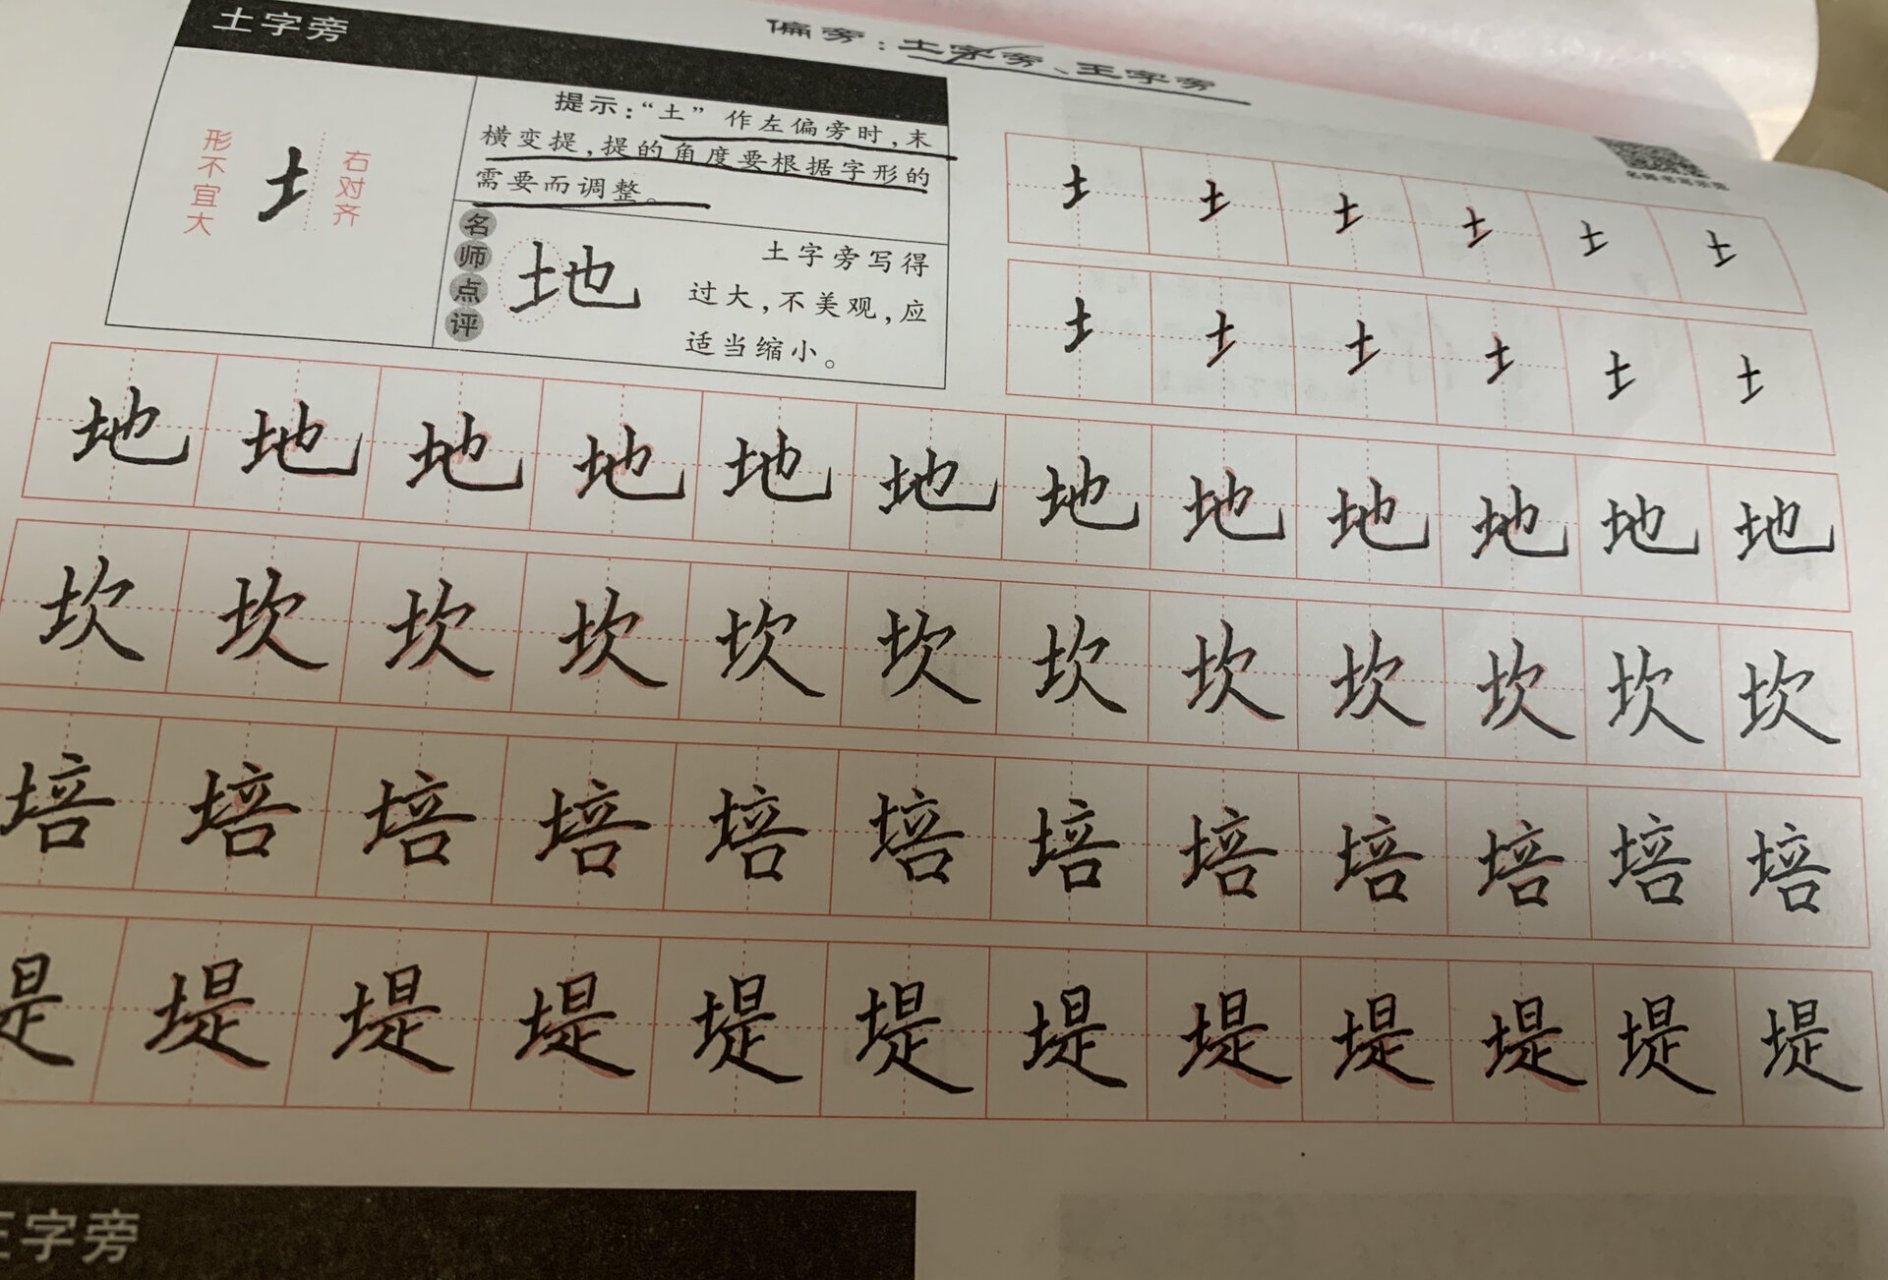 偏旁：土字旁、王字旁
土字旁
形不宜大
土
右对齐
提示：“土”作左偏旁时，末
横变提，提的角度要根据字形的
需要而调整。
名师点评
地
土字旁写得
过大，不美观，应
适当缩小。
土 土 土 土 土 土
土 土 土 土 土 土
地 地 地 地 地 地 地 地 地 地 地 地
坎 坎 坎 坎 坎 坎 坎 坎 坎 坎 坎 坎
培 培 培 培 培 培 培 培 培 培 培 培
堤 堤 堤 堤 堤 堤 堤 堤 堤 堤 堤 堤
王字旁